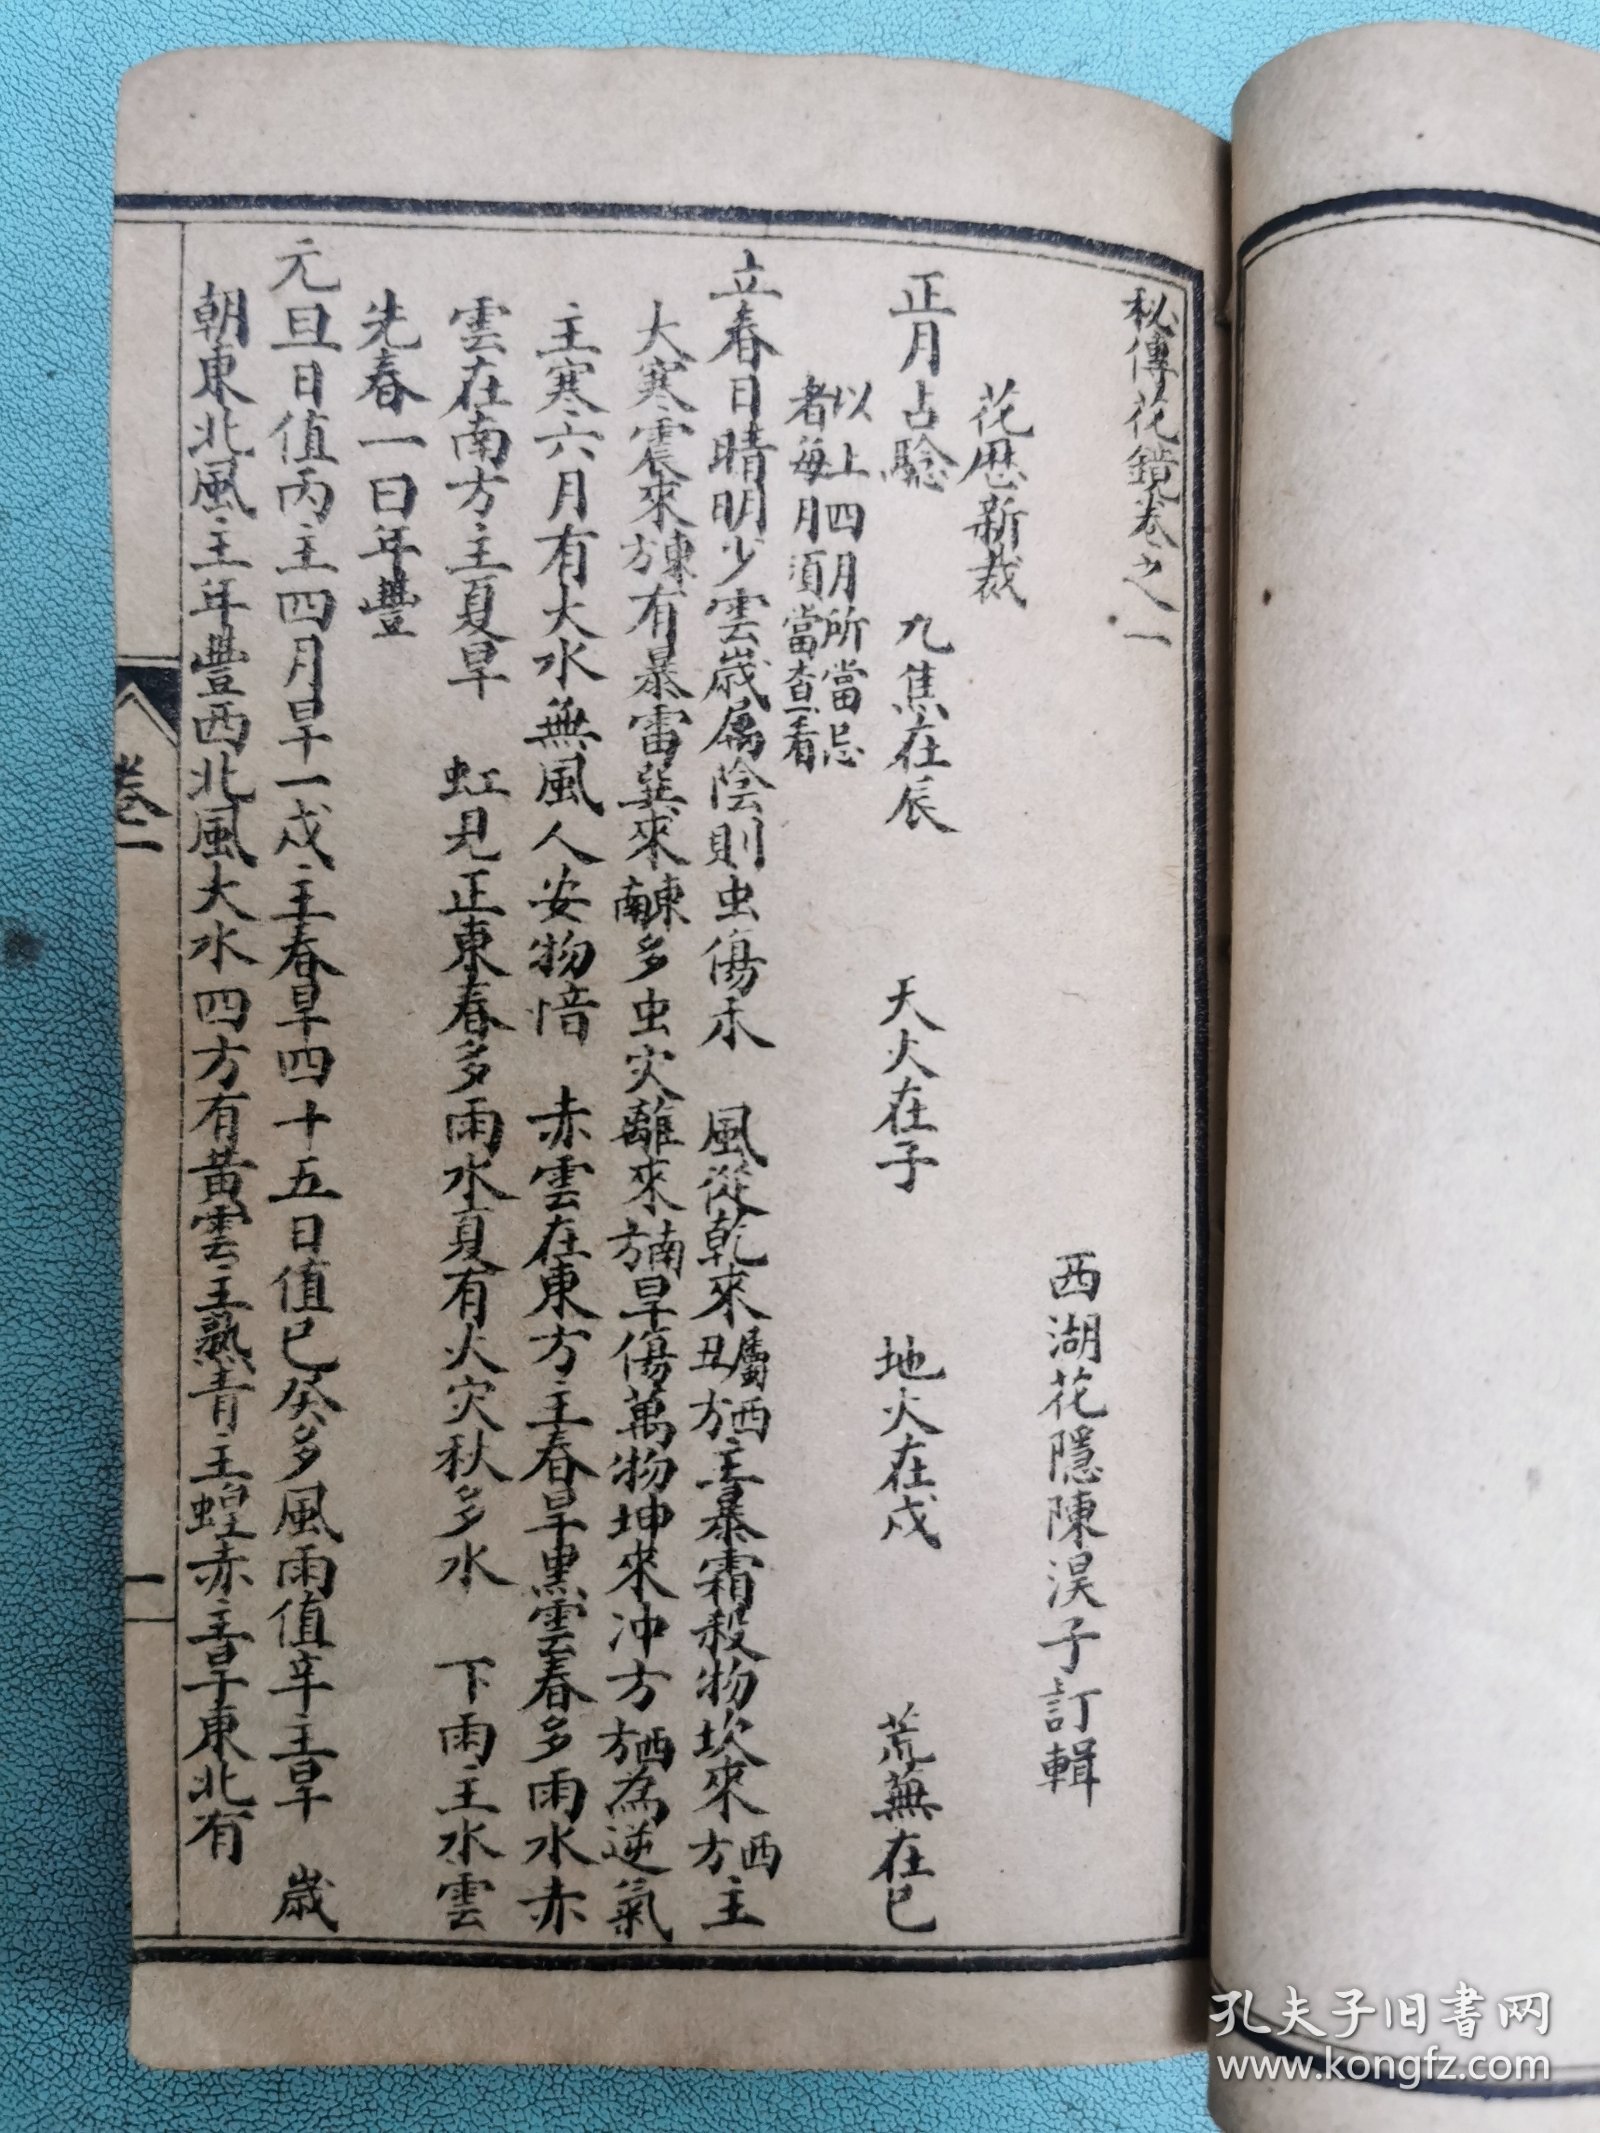 秘傳花鏡卷之一
西湖花隱陳淏子訂輯
花歷新裁
正月占驗 九焦在辰 天火在子 地火在戌 荒蕪在巳
以上四月所當忌
者每月須當查看
立春日晴明少雲歲屬陰則虫傷禾 風從乾來西方主暴霜殺物坎來西方主
大寒震來東方有暴雷巽來東南多虫灾離來南方旱傷萬物坤來冲方西方為逆氣
主寒六月有大水無風人安物愔 赤雲在東方主春旱黑雲春多雨水赤
雲在南方主夏旱 虹見正東春多雨水夏有火灾秋多水 下雨主水雲
先春一日年豐
元旦日值丙主四月旱一戊主春旱四十五日值巳癸多風雨值辛主旱 歲
朝東北風主年豐西北風大水四方有黃雲主熟青主蝗赤主旱東北有
卷一
一
孔夫子旧书网
www.kongfz.com